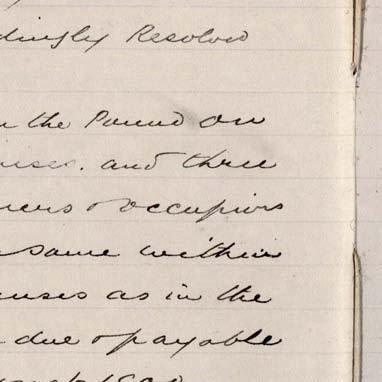 dingly Resolved
the Pound on
and three
occupiers
same within
as in the
due & payable